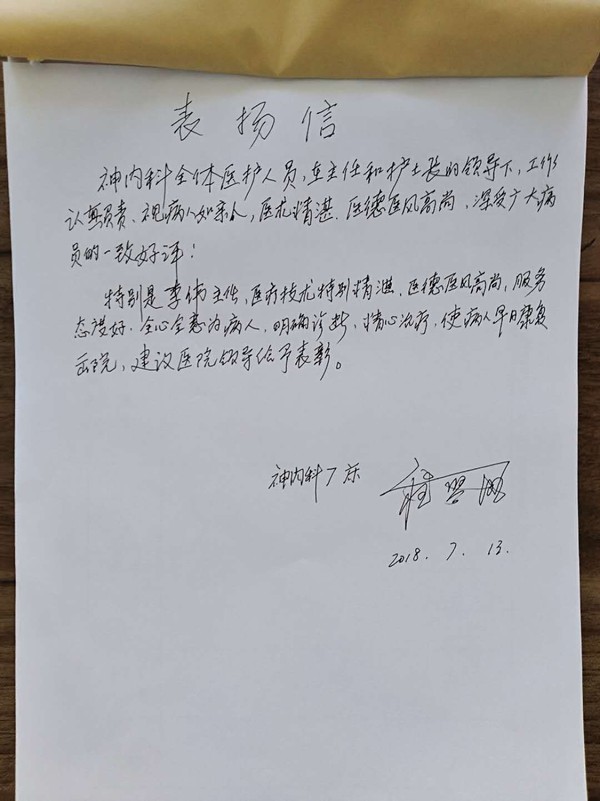 表扬信
神内科全体医护人员,在主任和护士长的领导下,工作
认真负责、视病人如亲人,医术精湛、医德医风高尚,深受广大病
员的一致好评:
特别是李伟主任,医疗技术特别精湛、医德医风高尚,服务
态度好、全心全意为病人、明确诊断、精心治疗,使病人早日康复
出院,建议医院领导给予表彰。
神内科7床
2018.7.13.